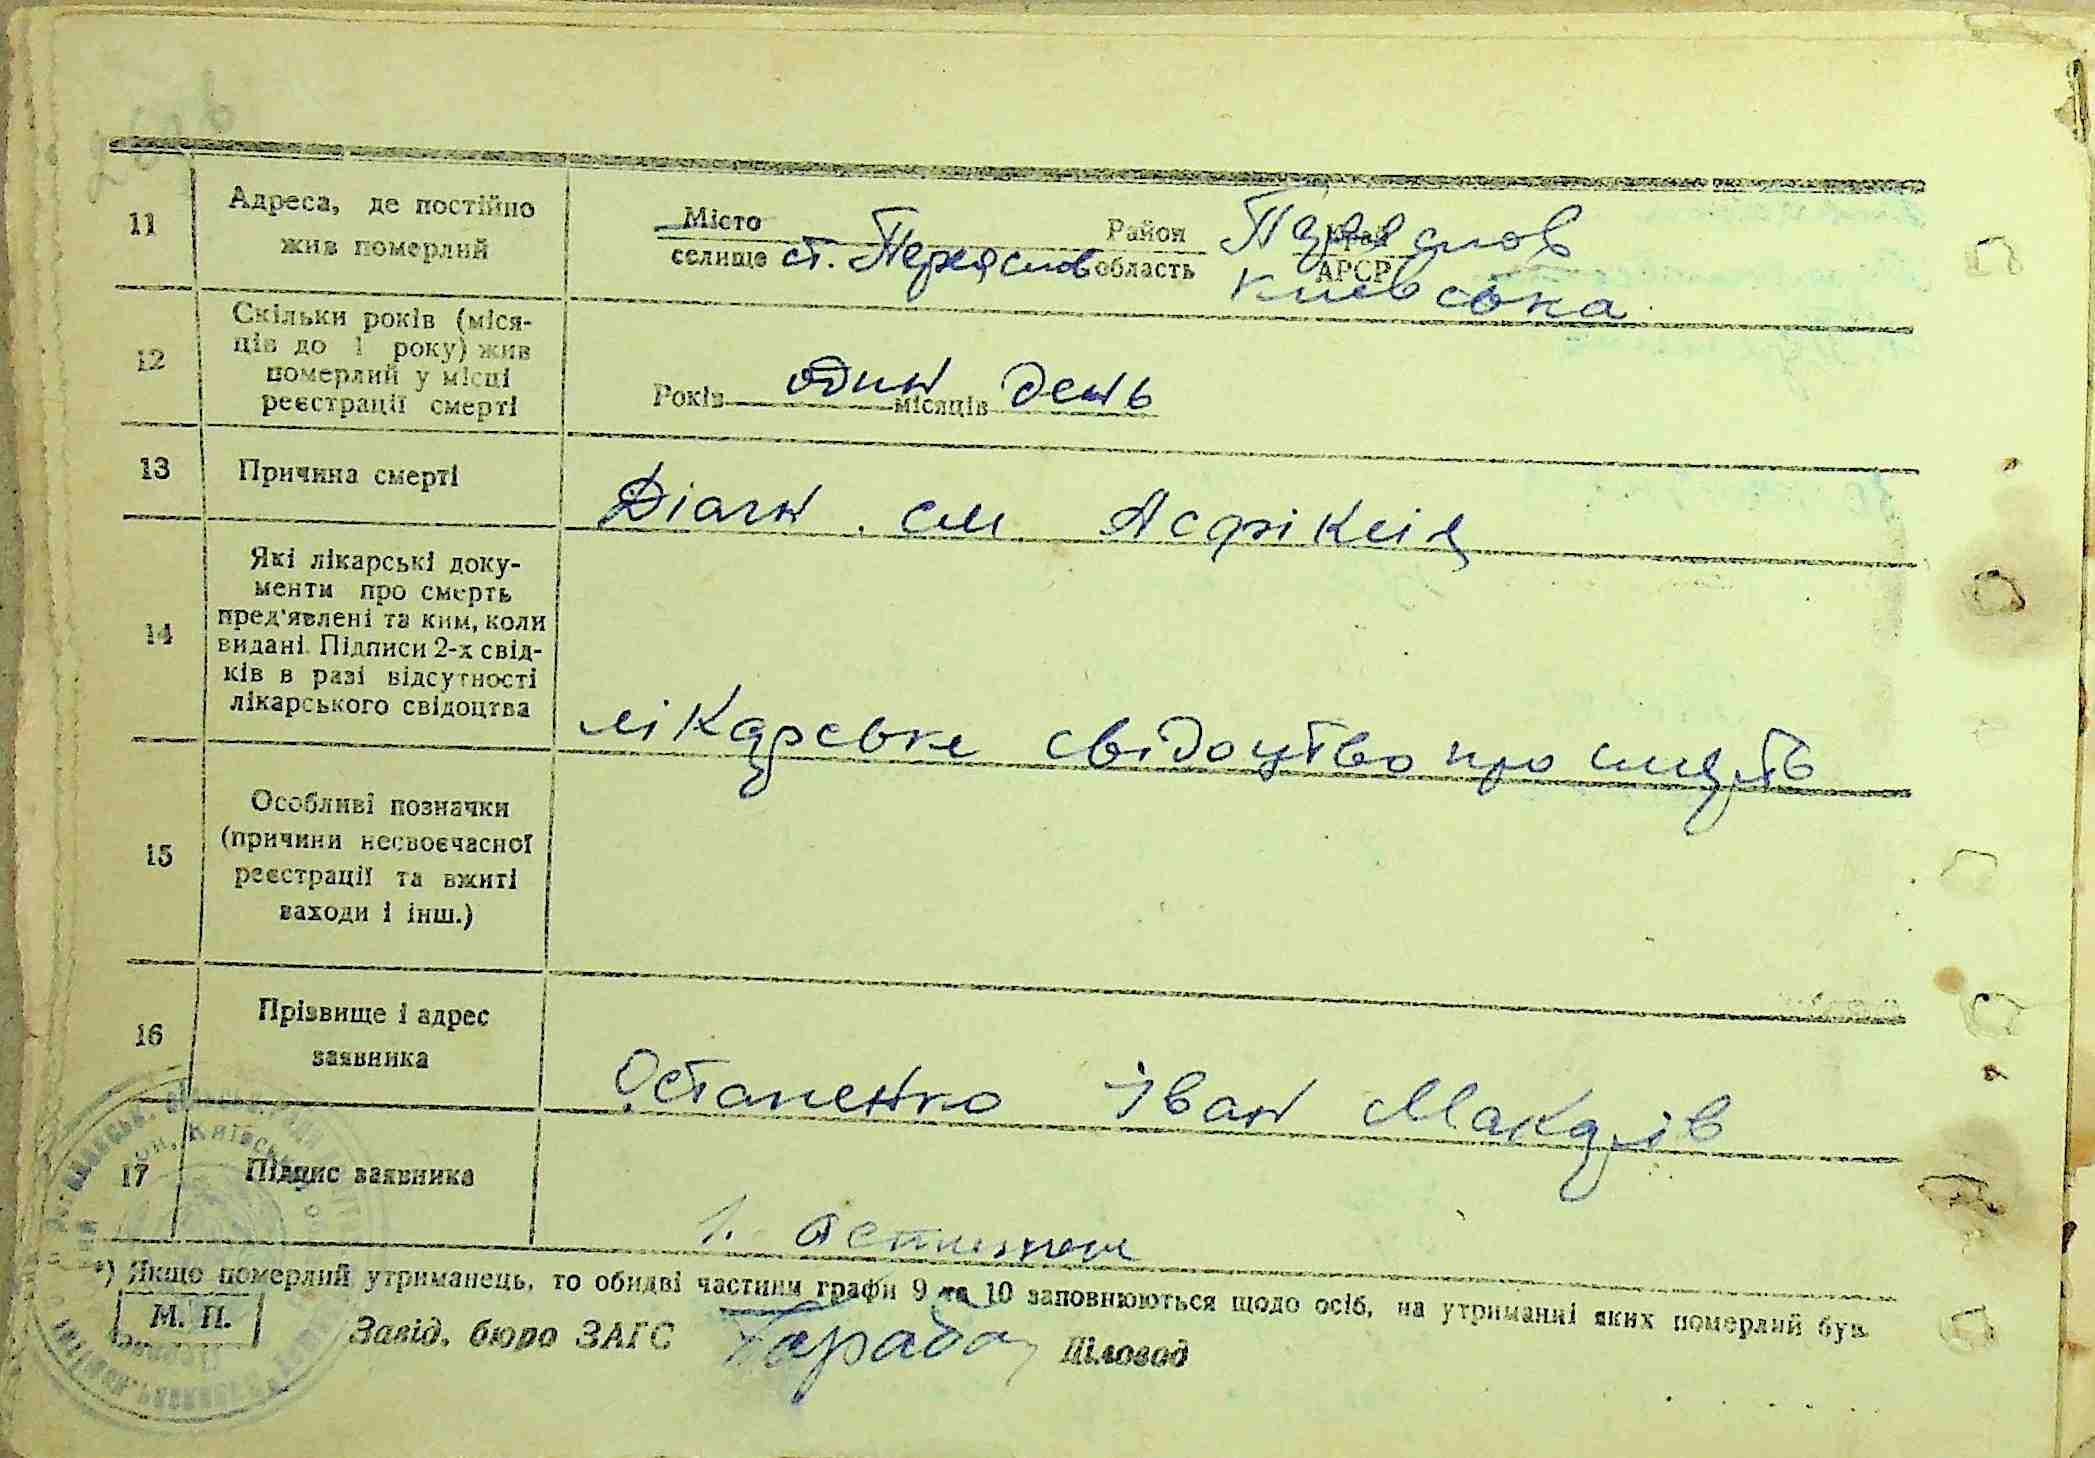 11
Адреса, де постійно
жив померлий
Місто Район Переяслов Край
селище ст. Переяслов область Киевська АРСР
12
Скільки років (міся-
ців до 1 року) жив
померлий у місці
реєстрації смерті
Років один місяців день
13
Причина смерті
Діагн. см. Асфіксія
14
Які лікарські доку-
менти про смерть
пред'явлені та ким, коли
видані. Підписи 2-х свід-
ків в разі відсутності
лікарського свідоцтва
лікарське свідоцтво про смерть
15
Особливі позначки
(причини несвоєчасної
реєстрації та вжиті
заходи і інш.)
16
Прізвище і адрес
заявника
Остапенко Іван Макарів
17
Підпис заявника
*) Якщо померлий утриманець, то обидві частини графи 9 та 10 заповнюються щодо осіб, на утриманні яких померлий був.
М. П.
Завід. бюро ЗАГС Діловод